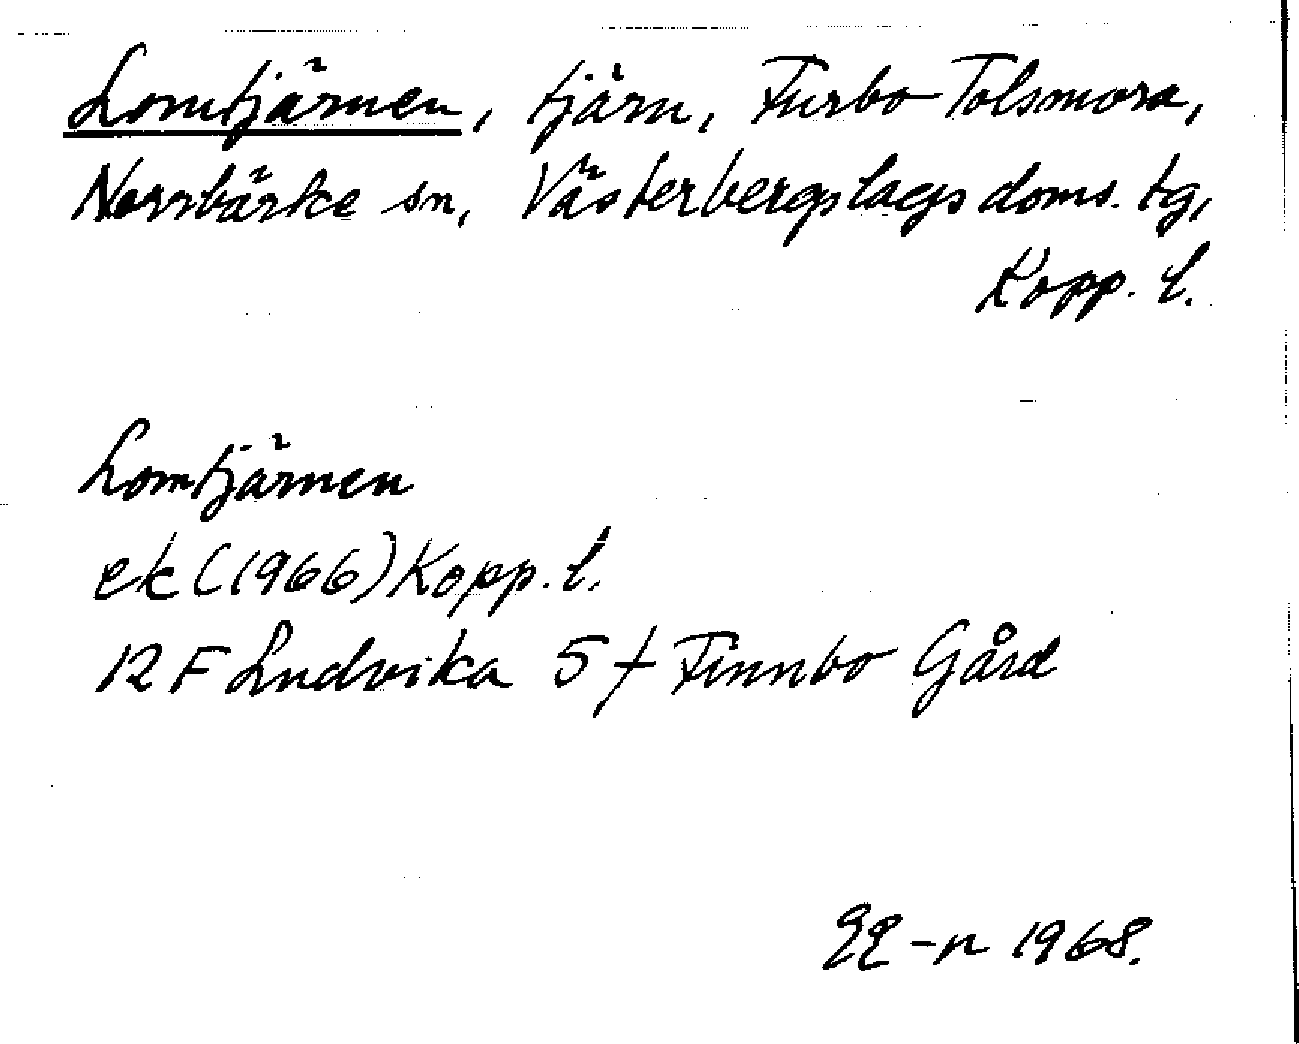 Lomtjärnen, tjärn, Furbo Tolsmora,
Norrbärke sn, Västerbergslags doms. tg,
Kopp. l.
Lomtjärnen
ek (1966) Kopp. l.
12 F Ludvika 5 f Finnbo Gård
-n 1968.